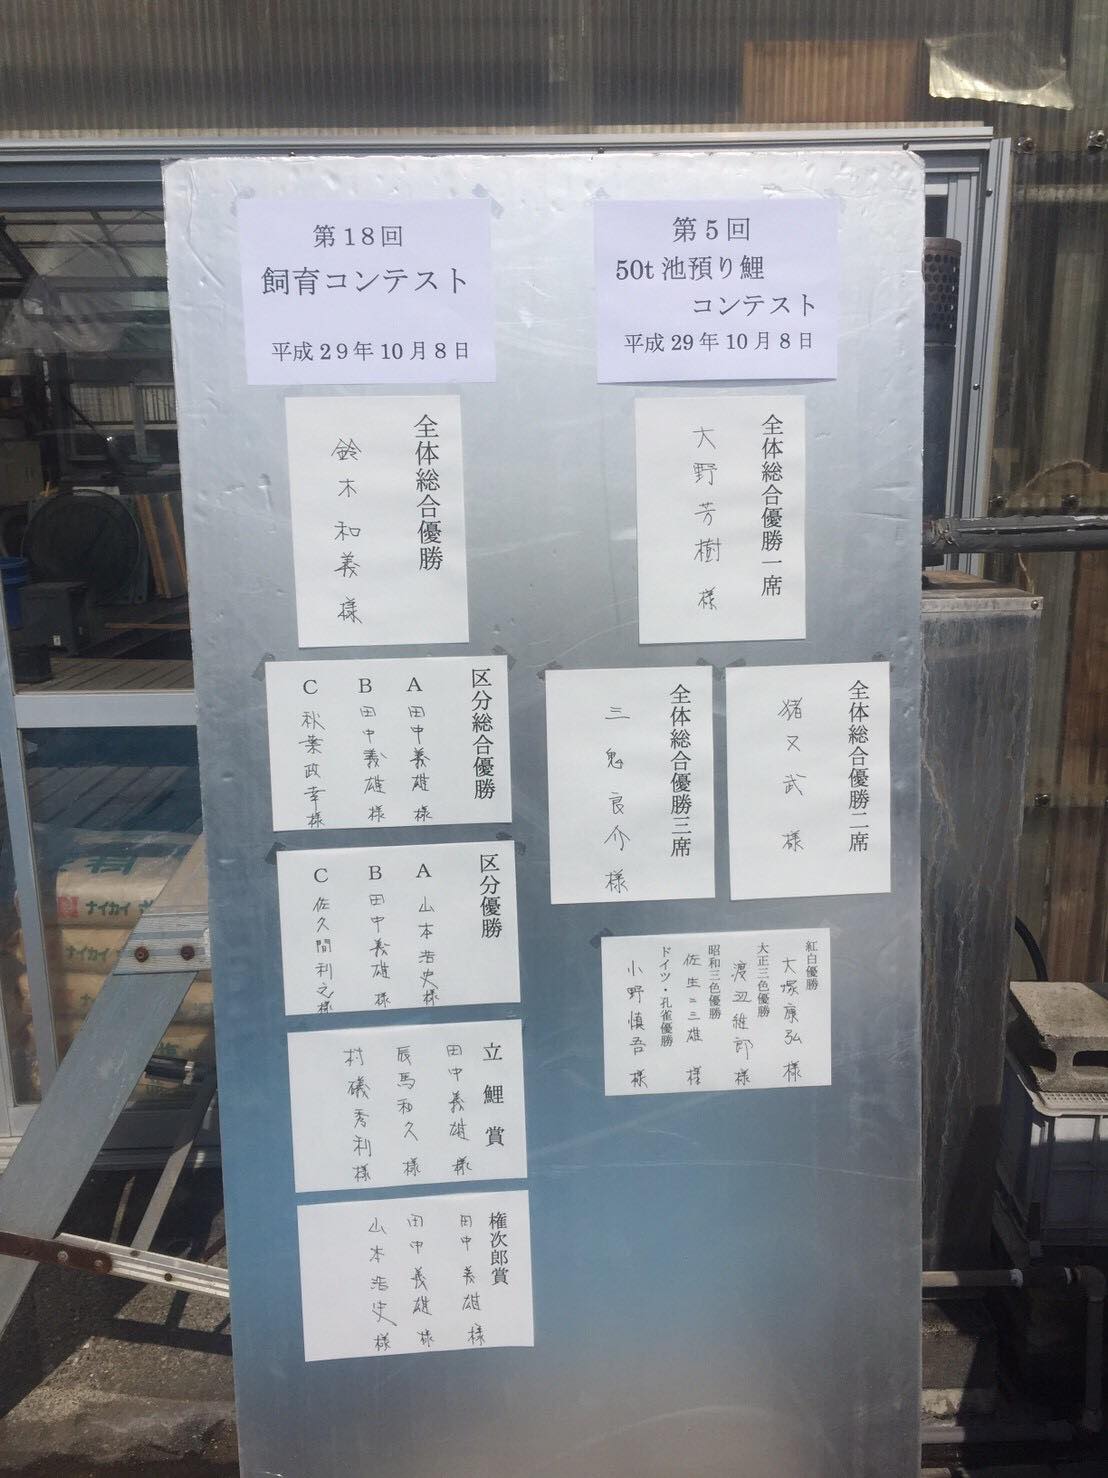 第18回
飼育コンテスト
平成29年10月8日
全体総合優勝
鈴木和義様
区分総合優勝
A 田中義雄様
B 田中義雄様
C 秋葉政幸様
区分優勝
A 山本浩史様
B 田中義雄様
C 佐久間利之様
立鯉賞
田中義雄様
辰馬和久様
村磯秀利様
権次郎賞
田中義雄様
田中義雄様
山本浩史様
第5回
50t池預り鯉
コンテスト
平成29年10月8日
全体総合優勝一席
大野芳樹様
全体総合優勝二席
猪又武様
全体総合優勝三席
三鬼良介様
紅白優勝
大塚康弘様
大正三色優勝
渡辺維郎様
昭和三色優勝
佐生二三雄様
ドイツ・孔雀優勝
小野慎吾様
ナイカイ